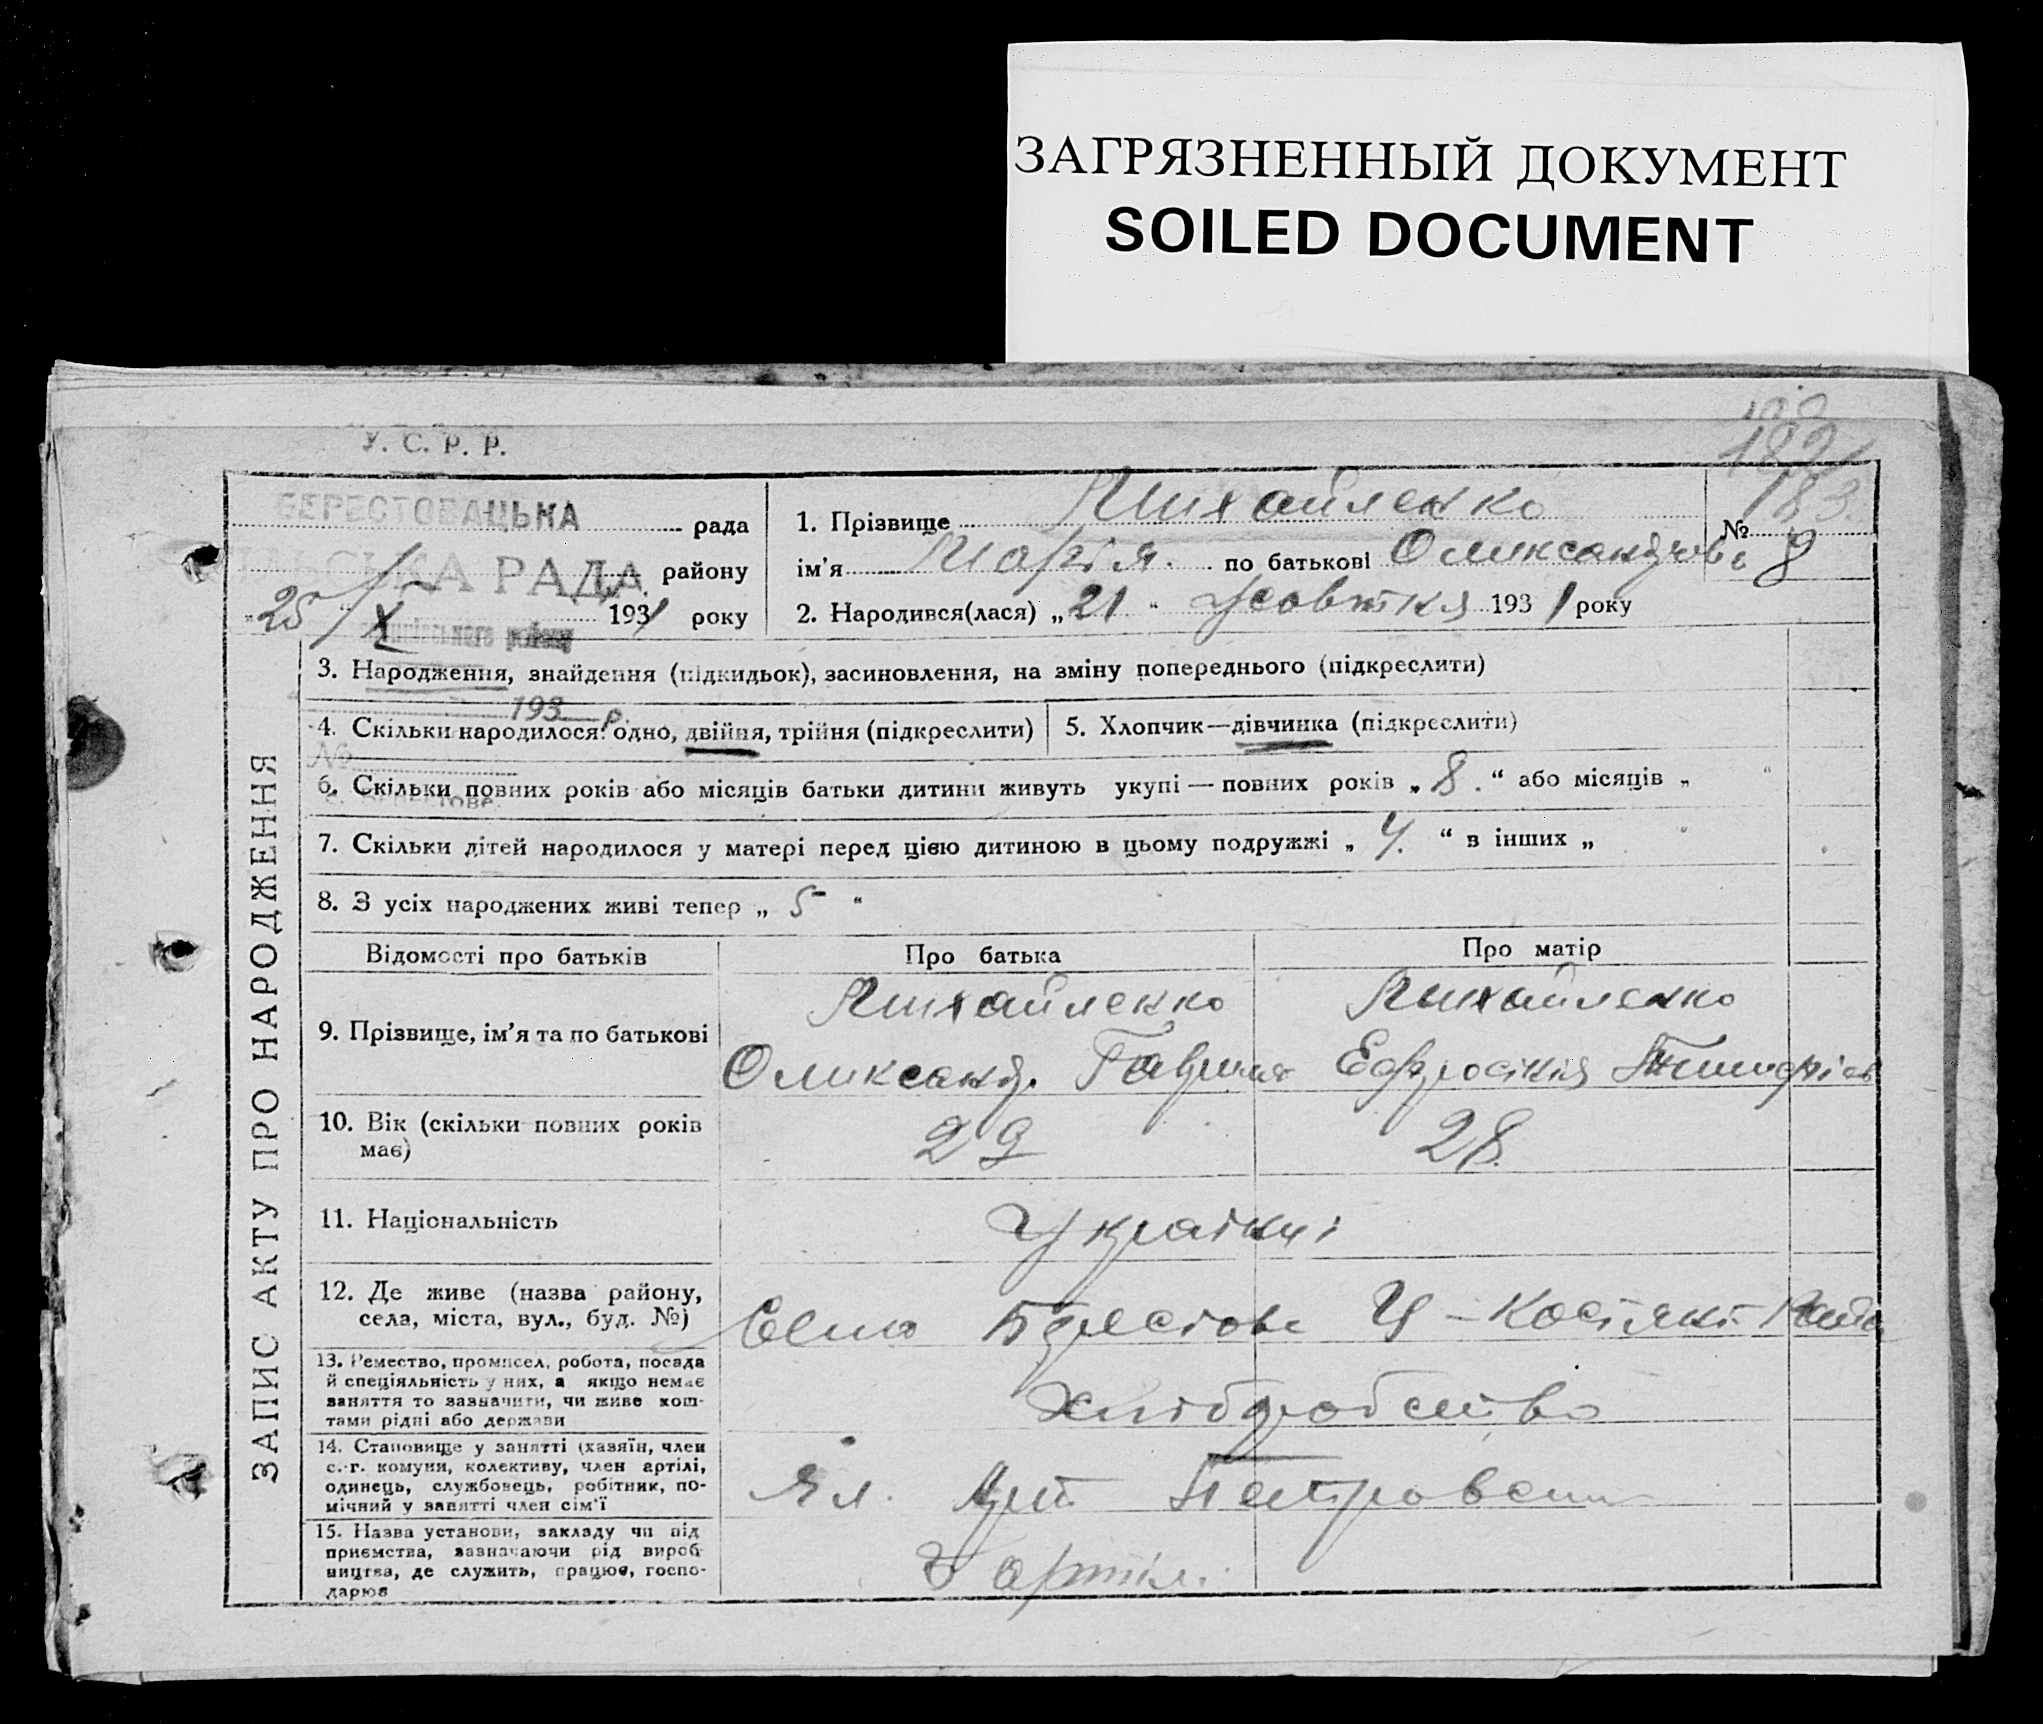 ЗАГРЯЗНЕННЫЙ ДОКУМЕНТ
SOILED DOCUMENT
У. С. Р. Р.
182
183
БЕРЕСТОВАЦЬКА рада
РАДА району
"25" X 1931 року
1. Прізвище Михайленко
№ 8
ім'я Марія. по батькові
2. Народився(лася) „21" Жовтня 1931 року
ЗАПИС АКТУ ПРО НАРОДЖЕННЯ
3. Народження, знайдення (підкидьок), засиновлення, на зміну попереднього (підкреслити)
193 р.
4. Скільки народилося: одно, двійня, трійня (підкреслити)
5. Хлопчик—дівчинка (підкреслити)
№
6. Скільки повних років або місяців батьки дитини живуть укупі — повних років „8." або місяців „ "
7. Скільки дітей народилося у матері перед цією дитиною в цьому подружжі „4." в інших „ "
8. З усіх народжених живі тепер „5"
Відомості про батьків
Про батька
Про матір
9. Прізвище, ім'я та по батькові
Михайленко
Михайленко
10. Вік (скільки повних років
має)
29
28
11. Національність
Українці
12. Де живе (назва району,
села, міста, вул., буд. №)
Село
13. Ремество, промисел, робота, посада
й спеціяльність у них, а якщо немає
заняття то зазначити, чи живе кош-
тами рідні або держави
14. Становище у занятті (хазяїн, член
с.-г. комуни, колективу, член артілі,
одинець, службовець, робітник, по-
мічний у занятті член сім'ї
15. Назва установи, закладу чи під
приємства, зазначаючи рід вироб
ництва, де служить, працює, госпо-
дарює